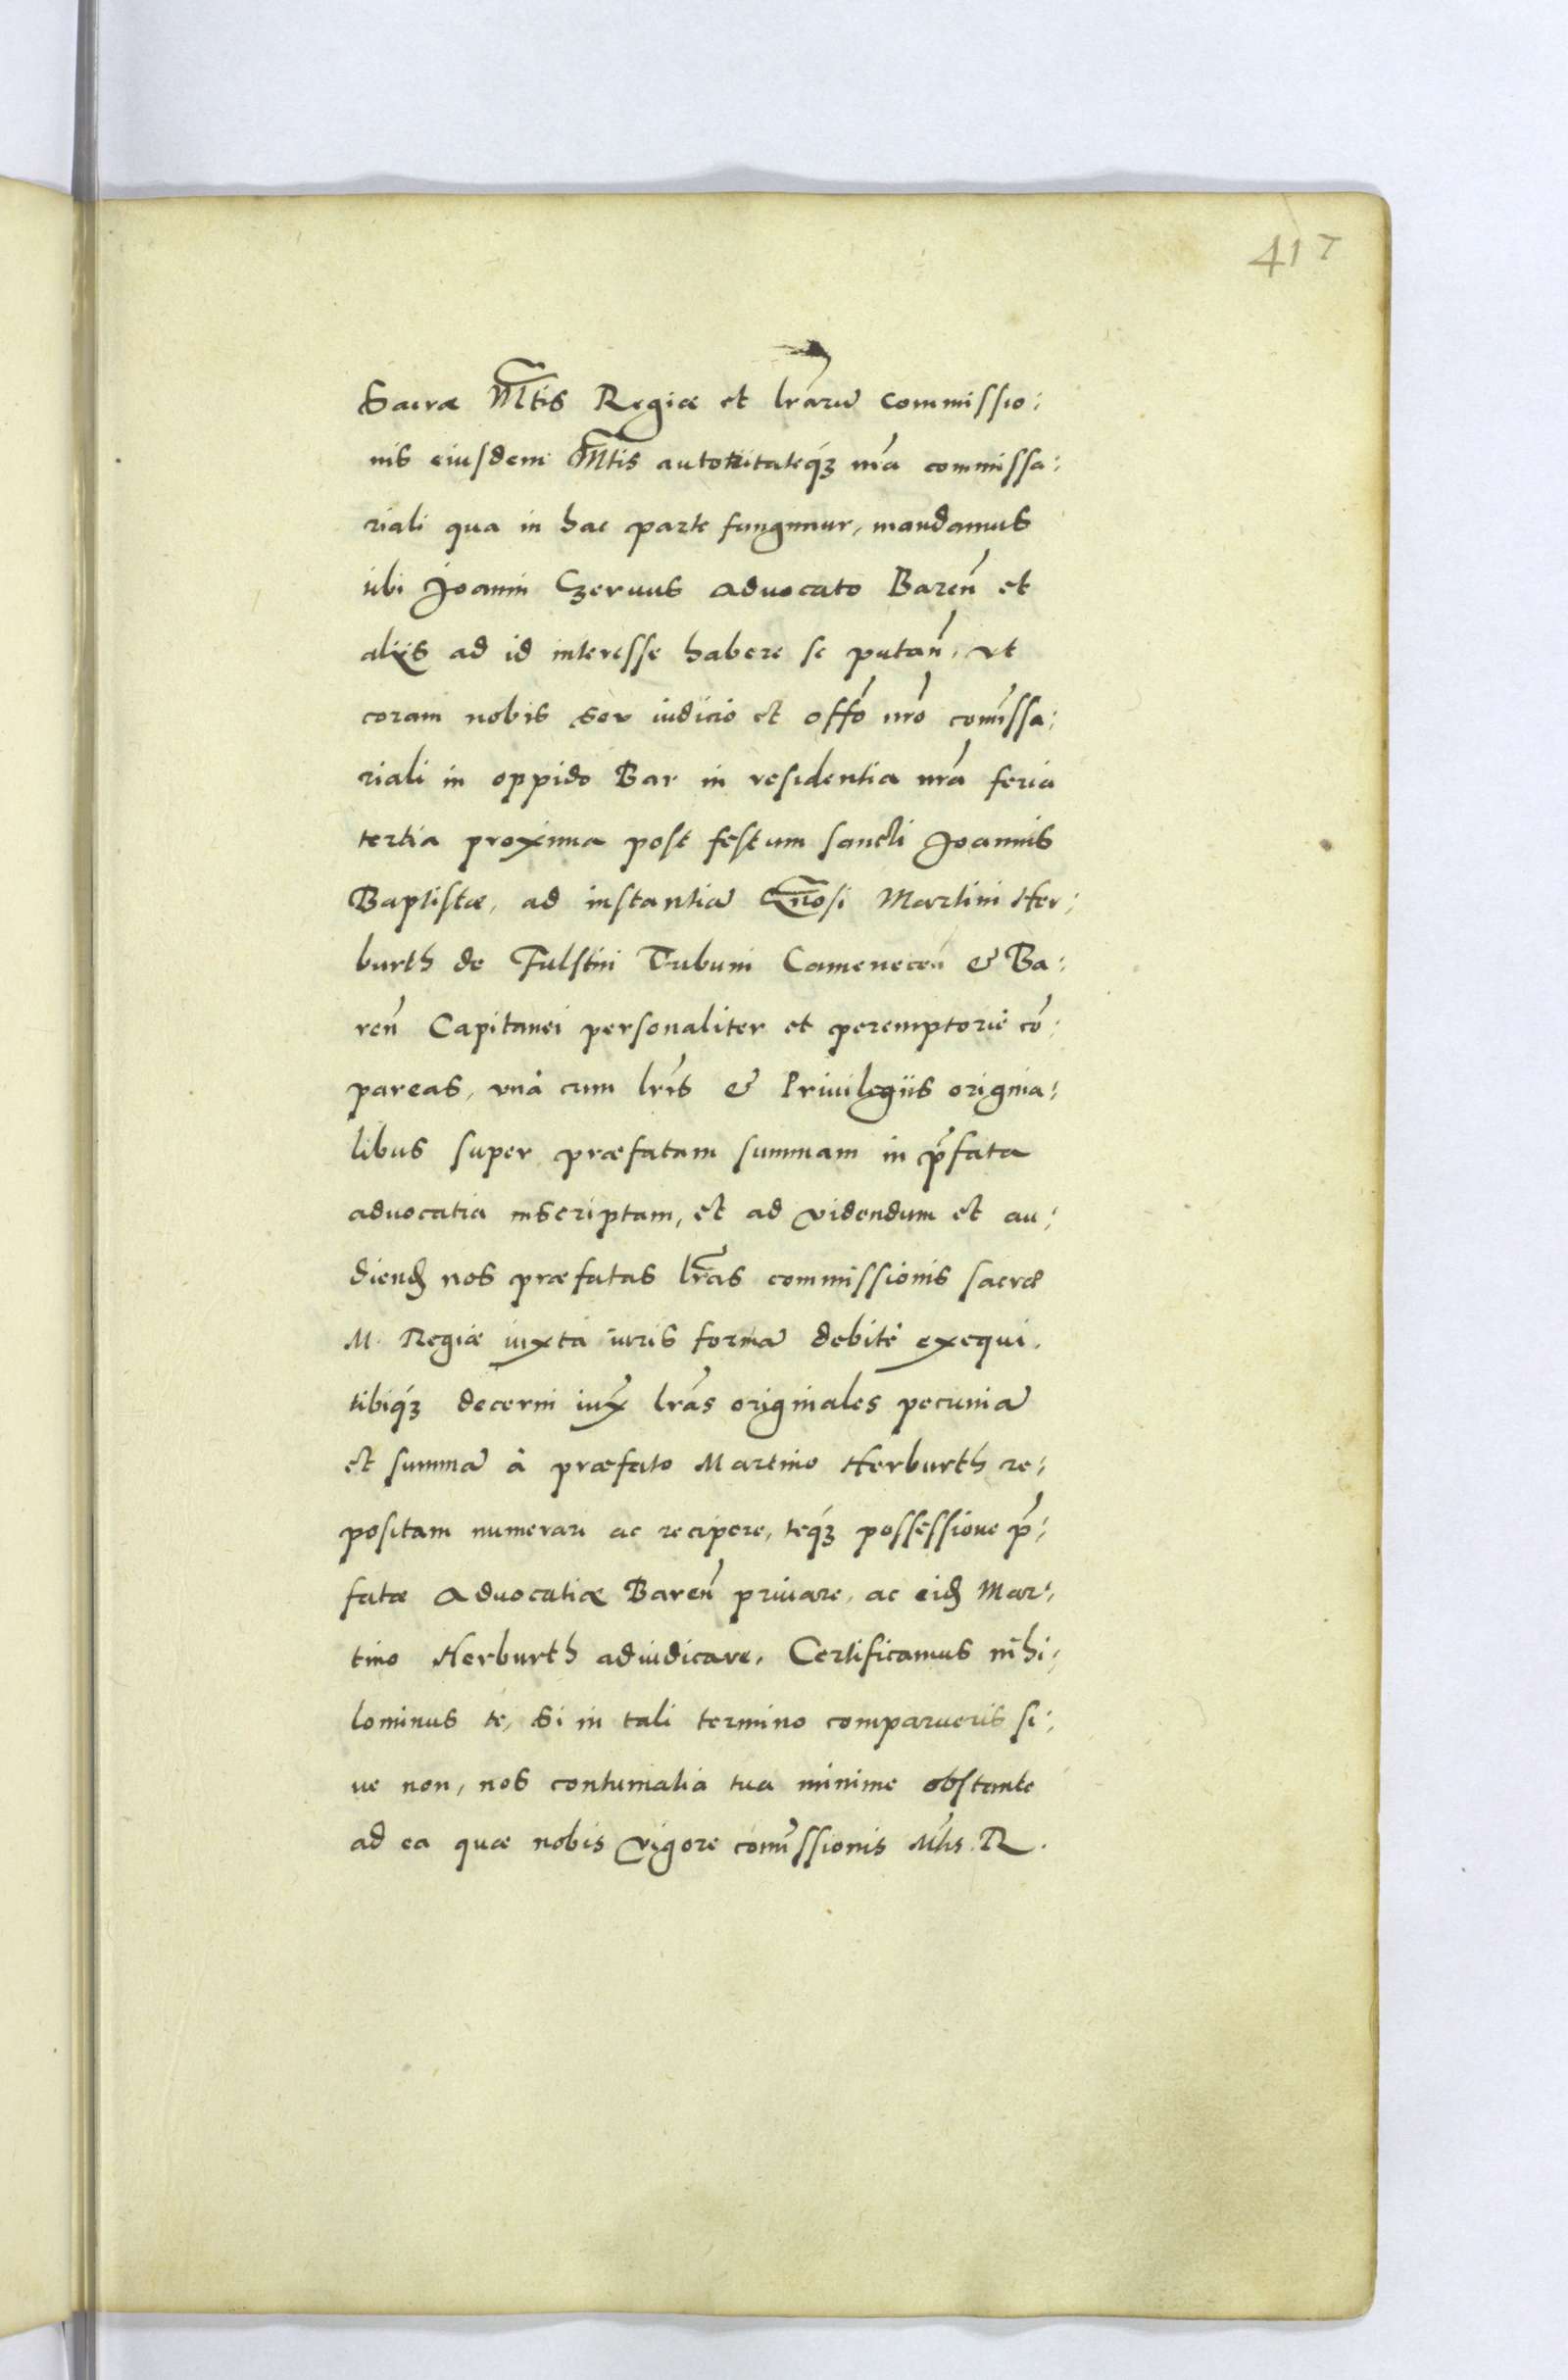 417
Sacræ Mtis Regiæ et lrarũ commissio:
nis eiusdem Mtis autoritateq́ꝫ nrã commissa:
riali qua in hac parte fungimur, mandamus
tibi Joanni Czervus advocato Bareñ et
aliis ad id interesse habere se putañ, vt
coram nobis seu iudicio et offõ nrõ com̃issa:
riali in oppido Bar in residentia nrã feria
tertia proxima post festum sancti Joannis
Baptistæ, ad instantiã Gnosi Martini Her:
burth de Fulstin Tribuni Cameneceñ & Ba:
reñ Capitanei personaliter et peremptoriè cõ:
pareas, vnà cum lrĩs & Priuilegiis origina:
libus super præfatam summam in p̃fata
advocatia inscriptam, et ad videndum et au:
diend nos præfatas lrãs commissionis sacræ
M. Regiæ iuxta iuris formã debitè exequi.
tibiq́ꝫ decerni iux̃ lrãs originales pecuniã
et summã à præfato Martino Herburth re:
positam numerari ac recipere, teq́ꝫ possessione p̃:
fatæ Advocatiæ Bareñ priuare, ac eid Mar:
tino Herburth adiudicare, Certificamus nihi:
lominus te, si in tali termino comparueris si:
ue non, nos contumatia tua minime obstante
ad ea quæ nobis vigore com̃issionis Mtis. R.